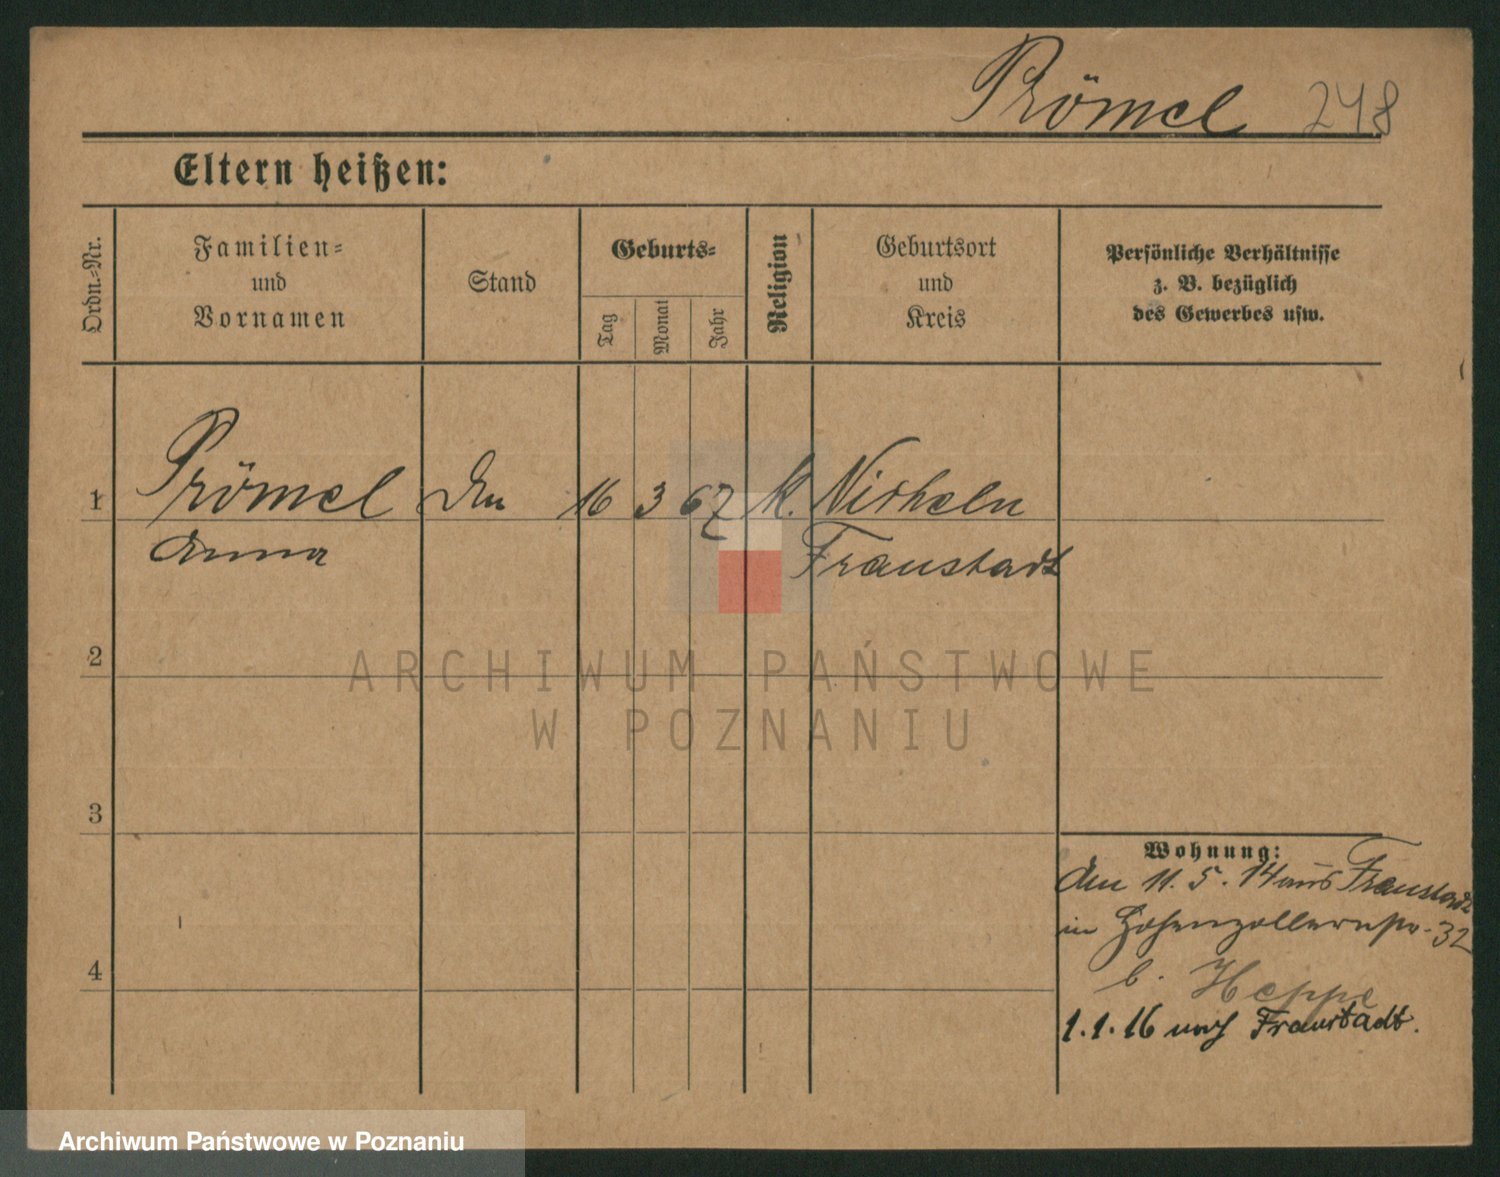 Prömel 248
Eltern heißen:
Ordn.-Nr.
Familien-
und
Vornamen
Stand
Geburts-
Tag
Monat
Jahr
Religion
Geburtsort
und
Kreis
Persönliche Verhältnisse
z. B. bezüglich
des Gewerbes usw.
1 Prömel 16 3 67 k.
Anna Fraustadt
2
3
4
Wohnung:
den 11. 5. 14 aus Fraustadt
in Hohenzollernstr. 32
b. Heppe
1.1.16 nach Fraustadt.
ARCHIWUM PAŃSTWOWE
W POZNANIU
Archiwum Państwowe w Poznaniu